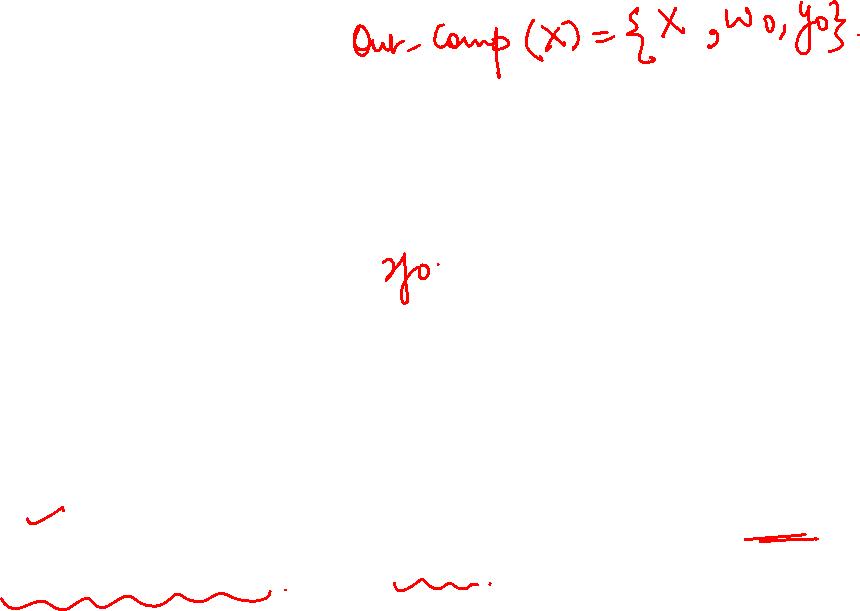 Out-Comp (X) = {X, W0, y0}.
y0.